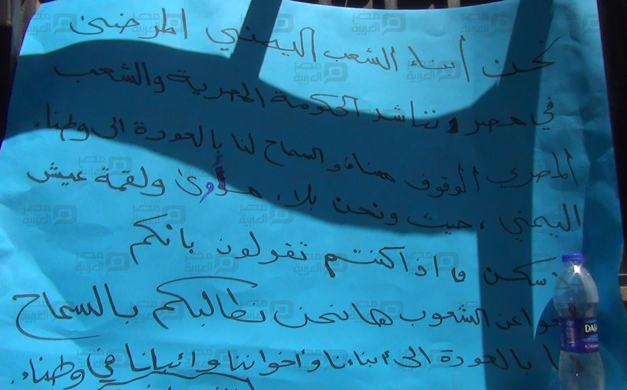 نحن أبناء الشعب اليمني المرضى
في مصر نناشد الحكومة المصرية والشعب
المصري الوقوف معنا والسماح لنا بالعودة الى وطننا
اليمني، حيث ونحن بلا مأوى ولقمة عيش
اذا كنتم تقولون بانكم
عن الشعوب ها نحن نطالبكم بالسماح
بالعودة الى أبناءنا واخواننا في وطننا.
مصر العربية